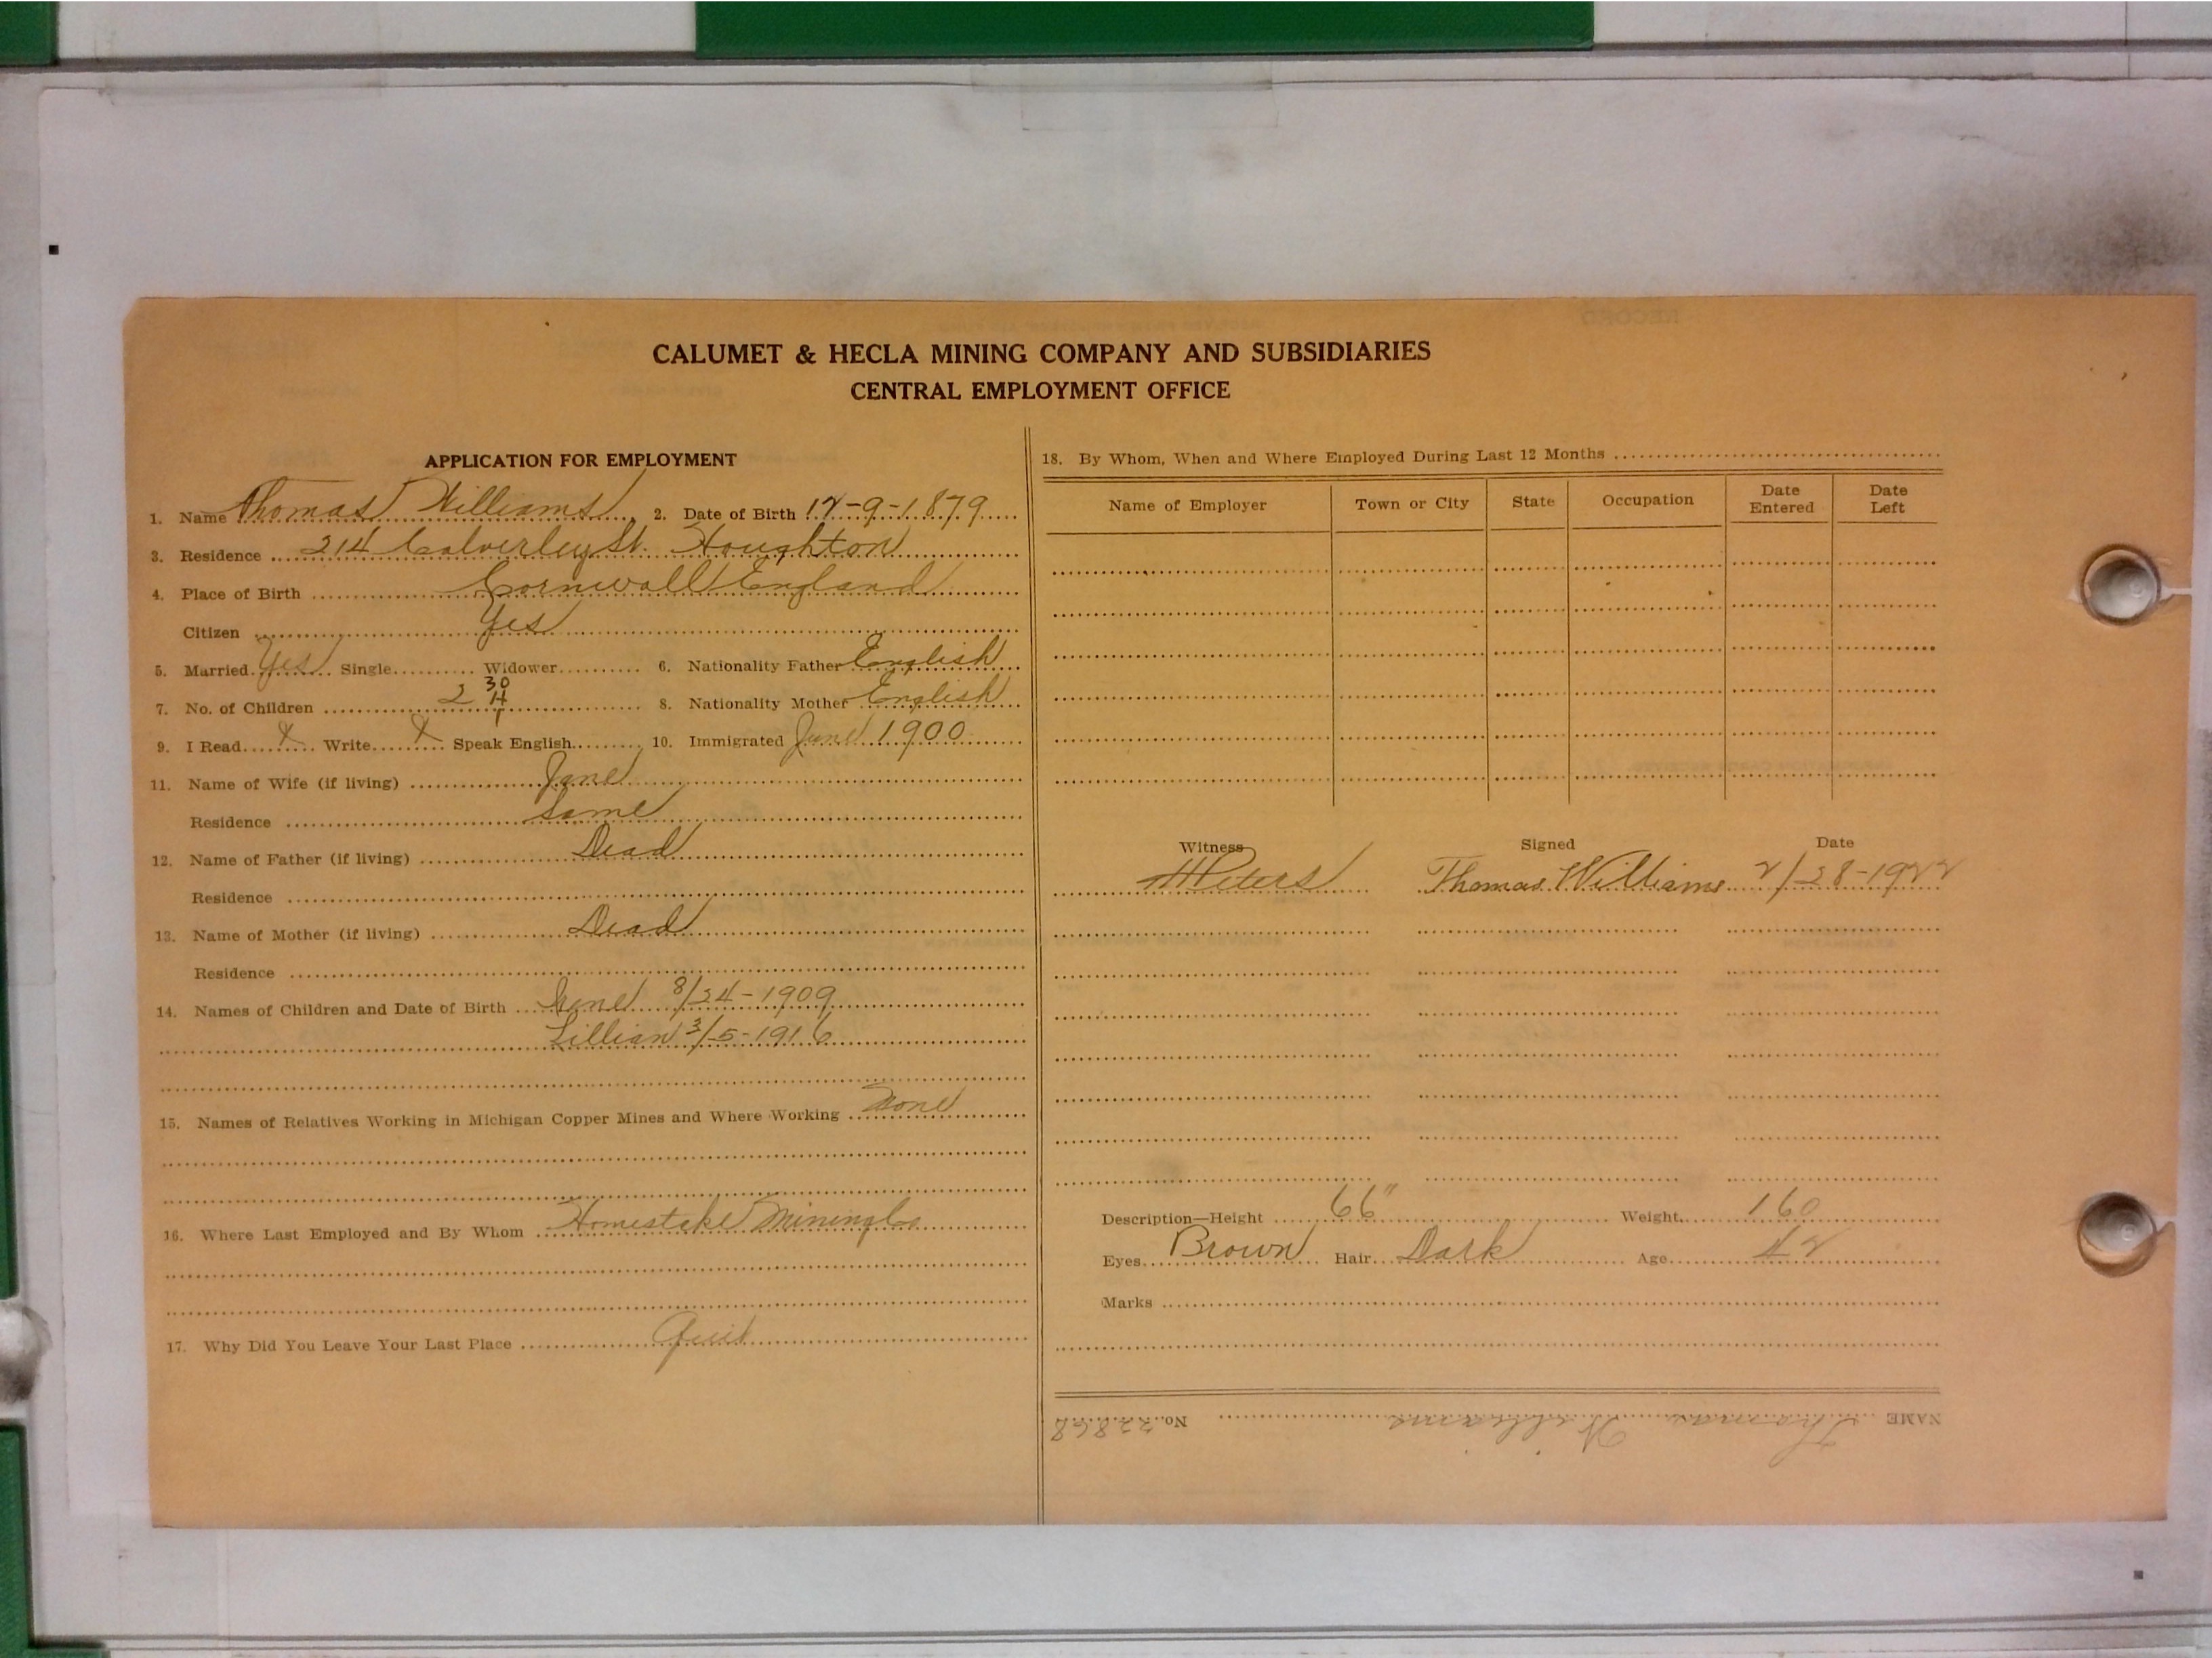 CALUMET & HECLA MINING COMPANY AND SUBSIDIARIES
CENTRAL EMPLOYMENT OFFICE
APPLICATION FOR EMPLOYMENT
1. Name Thomas Williams 2. Date of Birth 12-9-1879
3. Residence 214 Calverley St. Houghton
4. Place of Birth Cornwall England
Citizen Yes
5. Married Yes Single Widower 6. Nationality Father English
30
7. No. of Children 2 4 8. Nationality Mother English
9. I Read X Write X Speak English 10. Immigrated June 1900
11. Name of Wife (if living) Jane
Residence Same
12. Name of Father (if living) Dead
Residence
13. Name of Mother (if living) Dead
Residence
14. Names of Children and Date of Birth Irene 8/24-1909
Lillian 3/5-1916
15. Names of Relatives Working in Michigan Copper Mines and Where Working None
16. Where Last Employed and By Whom Homestake Mining Co
17. Why Did You Leave Your Last Place Quit
18. By Whom, When and Where Employed During Last 12 Months
Name of Employer Town or City State Occupation Date Entered Date Left
Witness Signed Date
Thomas Williams 2/28-1922
Description—Height 66" Weight 160
Eyes Brown Hair Dark Age 42
Marks
NAME Thomas Williams No. 22868